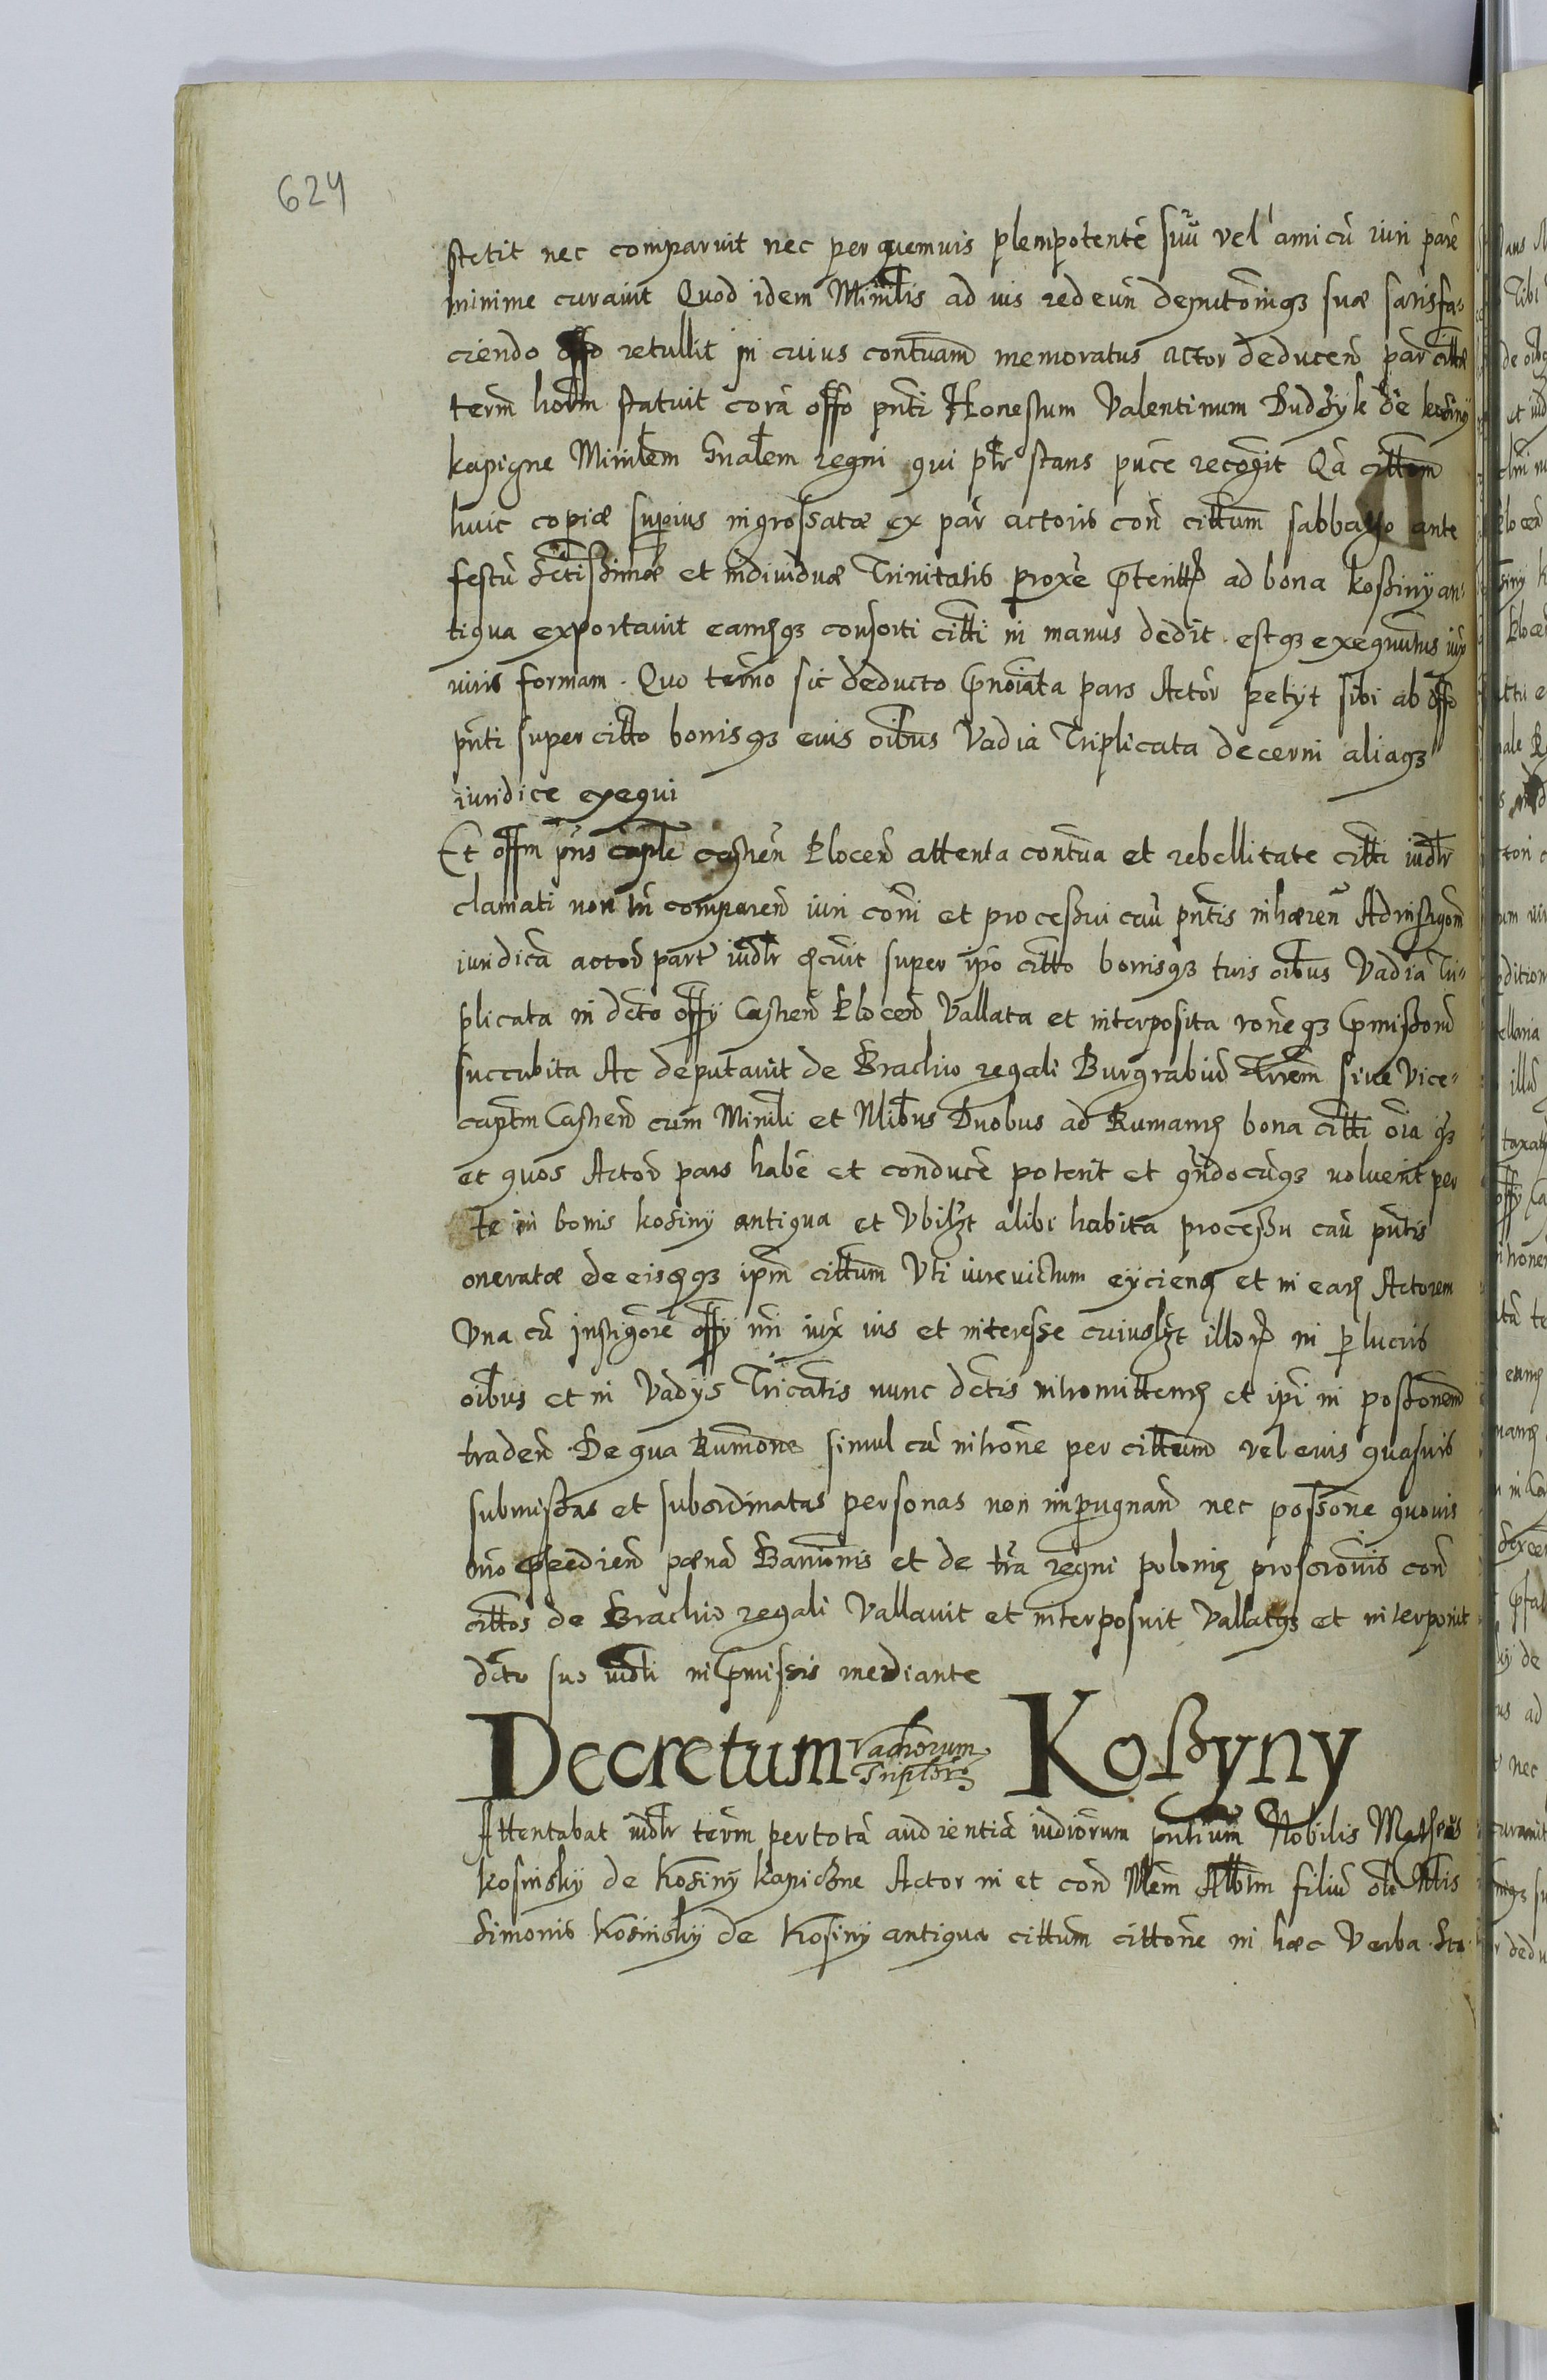 624
stetit nec comparuit nec per quemvis plenipotentē suū vel amicū iuri parē
minime curavit Quod idem Minlis ad ius redeuñ deputōniqȝ suæ satisfa-
ciendo offo retullit in cuius contuam̄ memoratus actor deducen̄ par citt
term̄ hoɖm statuit corā offo pn̄ti Honestum Valentinum Dudzyk de kosiny
kapigne Minilem Gnalem regni qui pltr stans puce recogit Qā cittom̄
huic copiæ superius ingrossatæ ex par actoris con̄ cittum sabbatho ante
festū Sctissimæ et individuæ Trinitatis proxē p̄terittȝ ad bona kossiny an-
tiqua exportavit eamqȝ consorti citti in manus dedit estqȝ exequutus iux
iuris formam. Quo termō sic deducto p̄noiata pars Actor petyt sibi ab offo
pn̄ti super citto bonisqȝ eius oibus Vadia Triplicata decerni aliaqȝ
iuridice exequi
Et offm pn̄s caple castren̄ Plocen̄ attenta contua et rebellitate citti iudlr
clamati non tn̄ comparen̄ iuri coni et processui cau pn̄tis inhæren̄ Ad instigon̄
iuridicā actor partē iudlr super ipo citto bonisqȝ suis oibus Vadia Tri-
plicata in dcto offy Castren̄ Plocen̄ Vallata et interposita roneqȝ p̄missorum
succubita Ac deputavit de Brachio regali Burgrabiū sive Vice-
captm Castren̄ cum Minili et Nlibus Duobus ad Rumand bona citti oia qȝ
et quos Actor pars habē et conducē poterit et qn̄docūqȝ voluerit per
te in bonis kosiny antiqua et Vbilȝt alibi habita processu cau pn̄tis
oneratæ de eisqȝ ipm cittum Vti iure victum eyciend et in ead Actorem
Vna cū instigorē offy nri iux ius et interesse cuiuslȝt illorȝ in p lucris
oibus et in Vadys Tricatis nunc dctis intromittend et ipi in possonem
traden̄ De qua Rumōne simul cū intrōne per cittum vel eius quasvis
submissas et subordinatas personas non impugnan̄ nec possōne quovis
mō p̄pedien̄ pænā Banionis et de tra regni poloniȩ proscronis con̄
cittos de Brachio regali Vallavit et interposuit Vallatqȝ et interponit
dcto suo iudli in p̄missis mediante
Decretum Vadiorum Triplor Koßyny
Attentabat iudlr term̄ per totā audientiā iudiorum pn̄tium Nobilis Matheus
kosinsky de Kosiny kapiczne Actor in et con̄ Nlem Albtm filiū oli Nlis
Simonis Kosinsky de Kosiny antiqua cittum cittōne in hæc Verba Sta